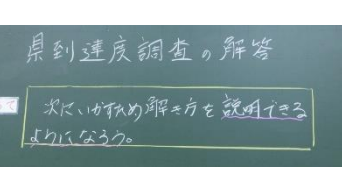 県到達度調査の解答
て
次にいかすため解き方を説明できる
ようになろう。